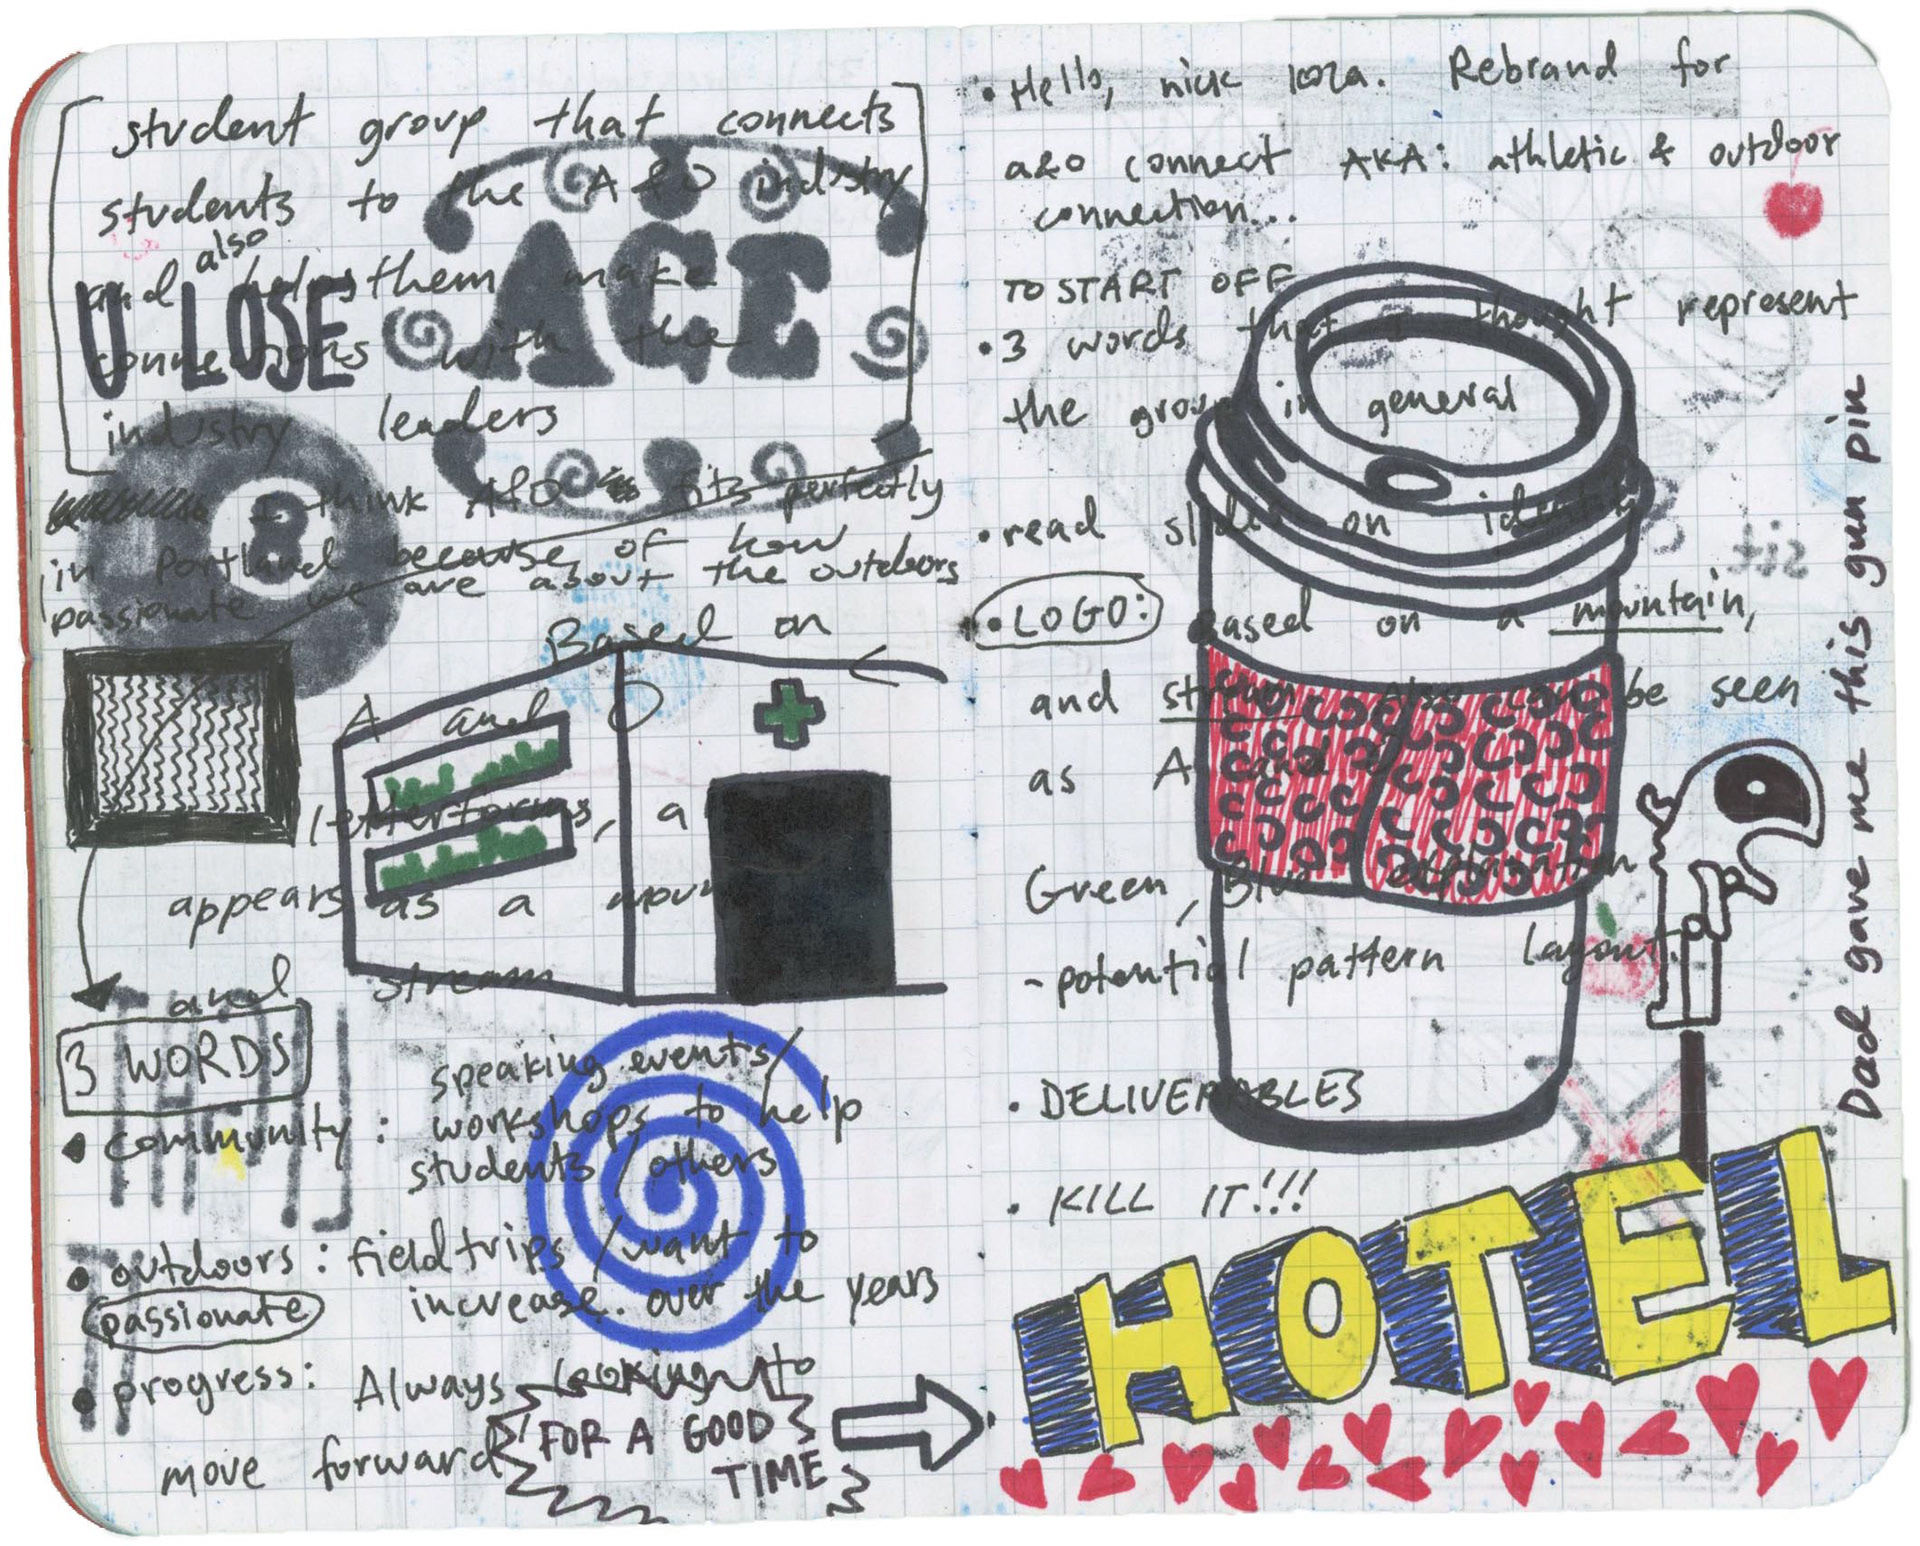 student group that connects
students to the A&O industry
and also helps them make
connections with the
industry leaders
U LOSE
AGE
8
I think A&O fits perfectly
in Portland because of how
passionate we are about the outdoors
Based on
A and O
letterforms, a
appears as a
and stream
3 WORDS
• community : speaking events/
workshops to help
students / others
• outdoors : field trips / want to
increase. over the years
passionate
• progress: Always looking to
move forward
FOR A GOOD
TIME
• Hello, nick . Rebrand for
a&o connect AKA: athletic & outdoor
connection...
TO START OFF
• 3 words that I thought represent
the group in general
• read slides on identity
• LOGO: Based on a mountain,
and stream. Also can be seen
as A and
Green, Blue explanation
- potential pattern layout.
• DELIVERABLES
• KILL IT!!!
HOTEL
Dad gave me this gun pin
sit